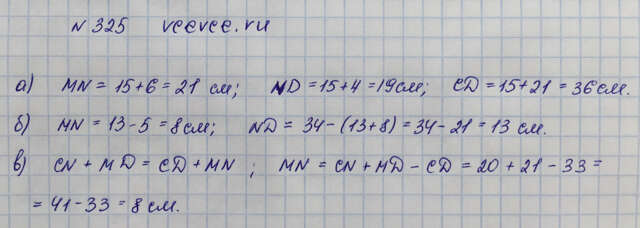 № 325 veevee.ru
а) MN = 15+6 = 21 см; ND = 15+4 = 19см; CD = 15+21 = 36см.
б) MN = 13-5 = 8см; ND = 34-(13+8) = 34-21 = 13 см.
в) CN + MD = CD + MN ; MN = CN + MD - CD = 20 + 21 - 33 =
= 41-33 = 8 см.